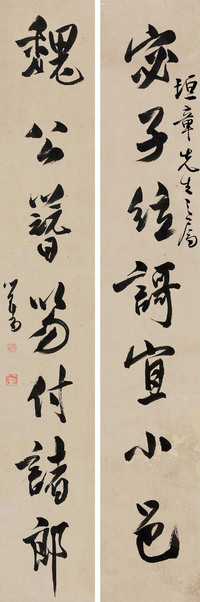 垣章先生之属
宓子弦謌宜小邑
魏公簪笏付諸郎
溥儒